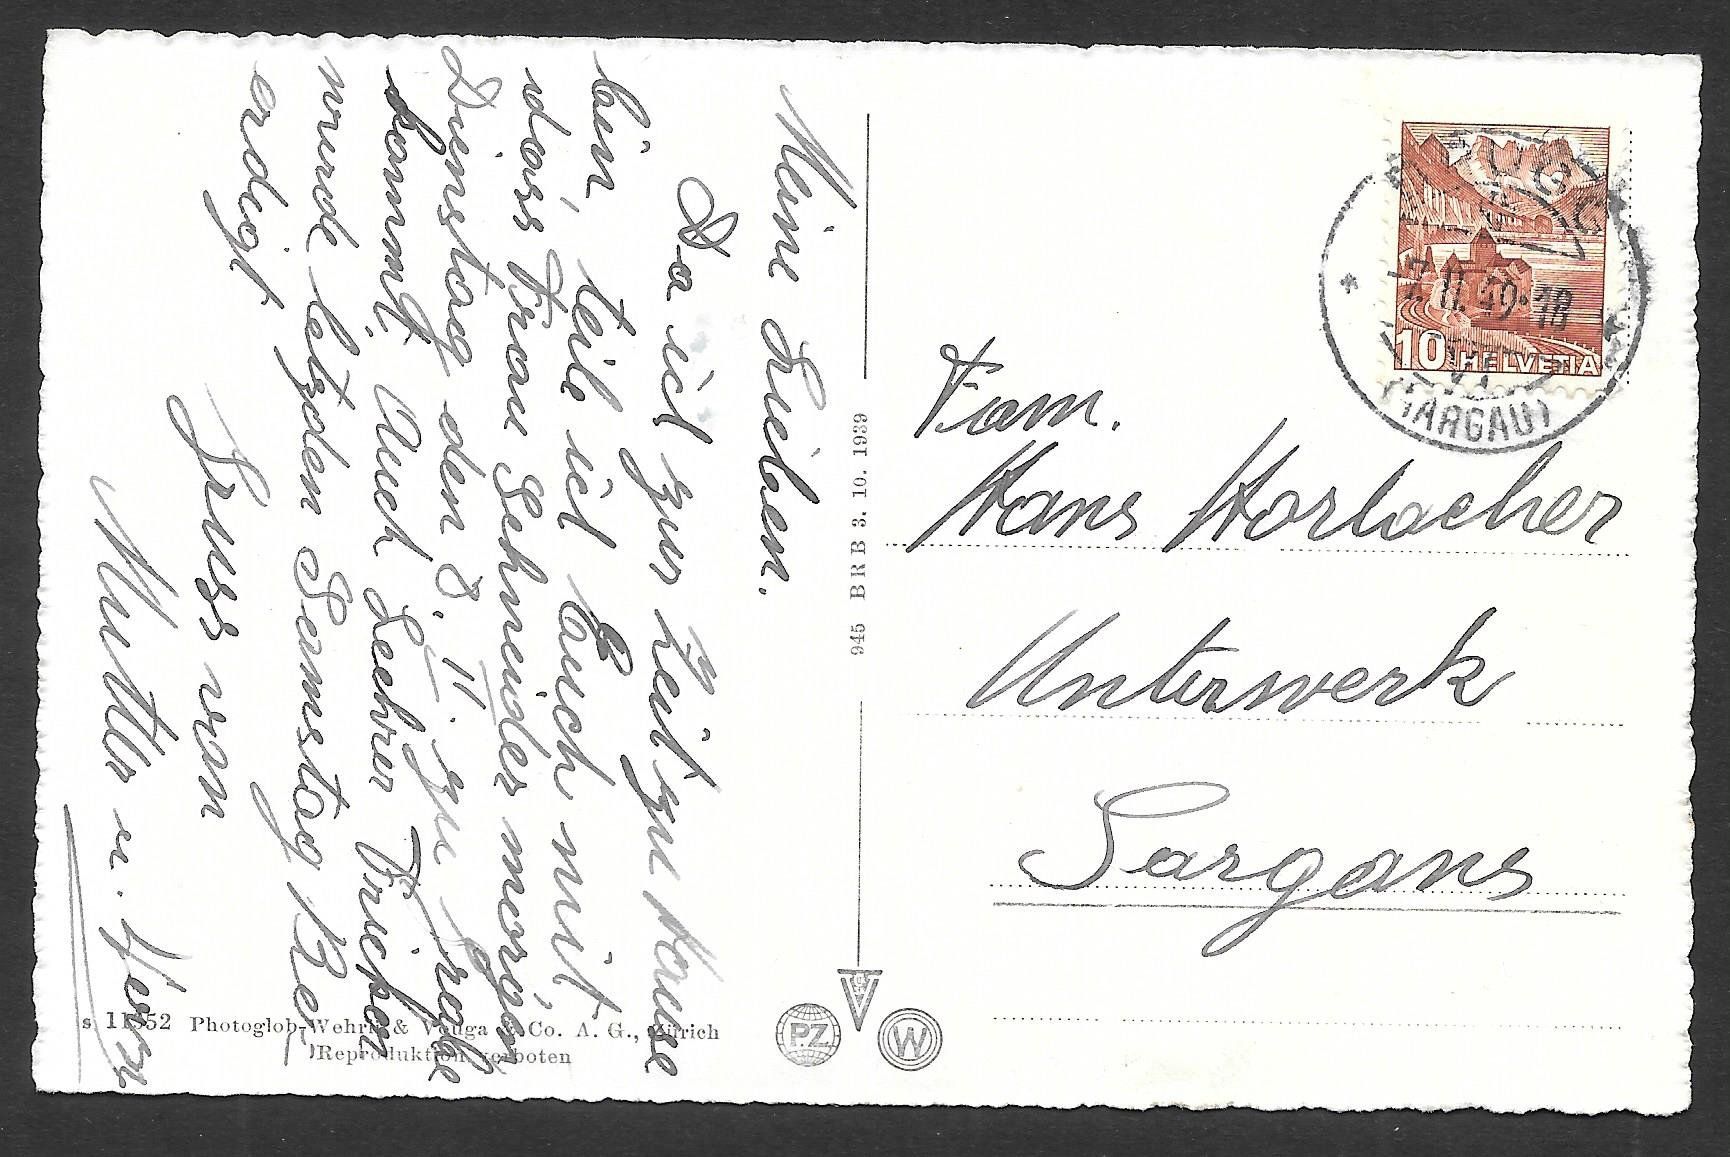 Meine Lieben.
Da ich zur Zeit zu Hause
bin, teile ich Euch mit,
dass Frau Schneider morgen
Dienstag den 8. II. zu Grabe
kommt. Auch Lehrer Fricker
wurde letzden Samstag Be,
erdigt.
Gruss von
Mutter u.
945 BRB 3. 10. 1939
Fam.
Hans Horlacher
Unterwerk
Sargans
BRUGG
7. II. 49-18
(AARGAU)
10 HELVETIA
s 11352 Photoglob-Wehrli & Vouga & Co. A. G., Zürich
Reproduktion verboten
P.Z
W